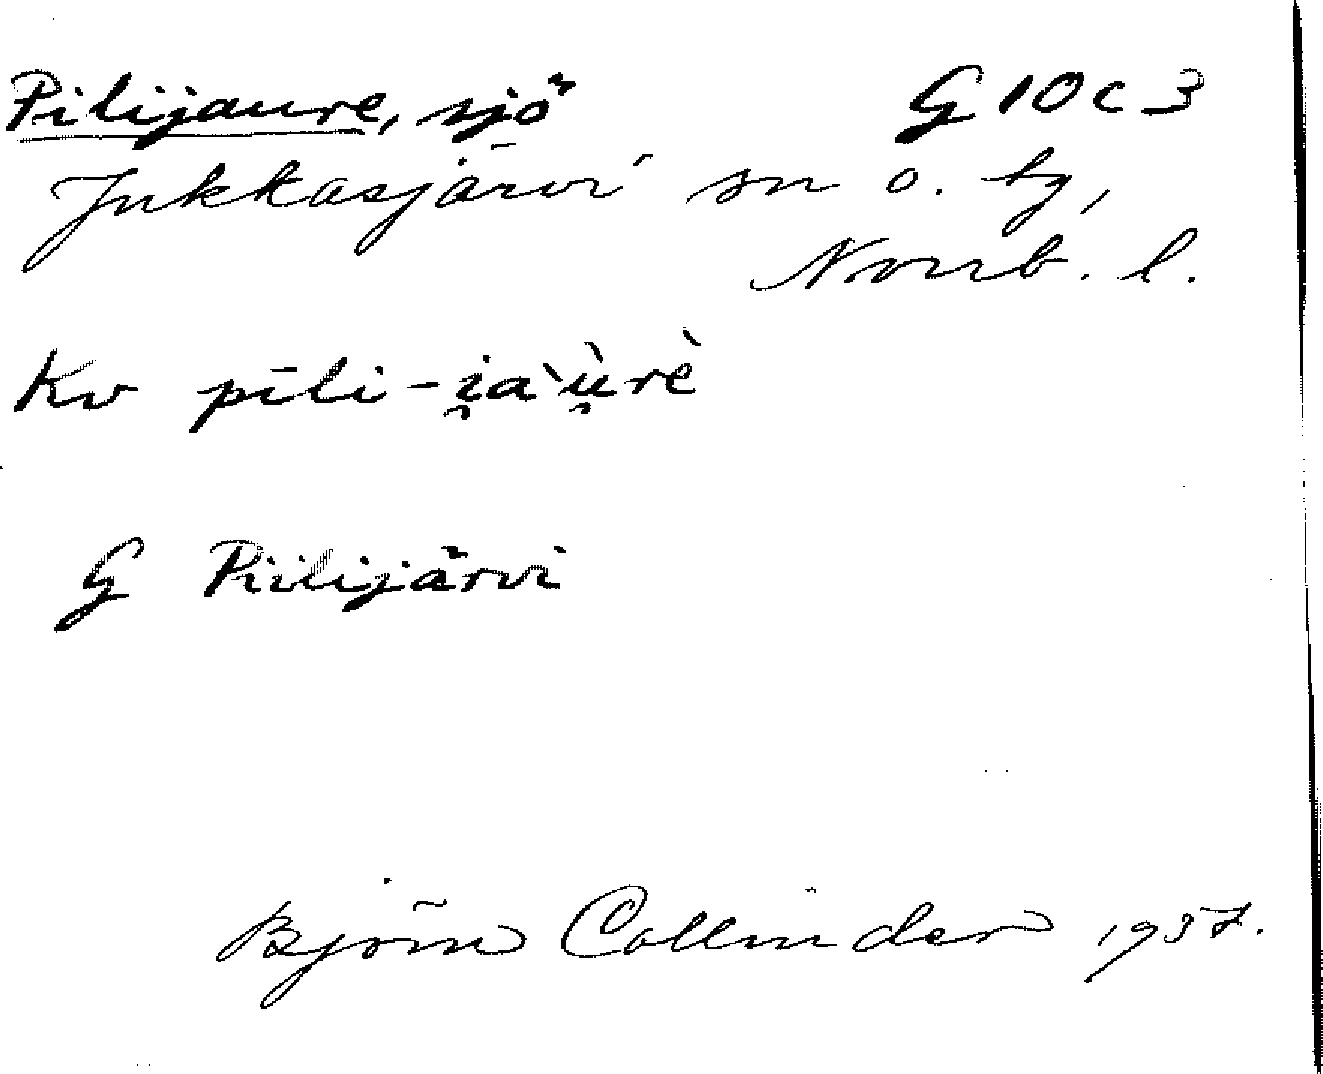 Pilijaure, sjö G 10 c 3
Jukkasjärvi sn o. tg,
Norrb. l.
Kv pīli-i̯a`ù̯rè
G Piilijärvi
Björn Collinder 1937.